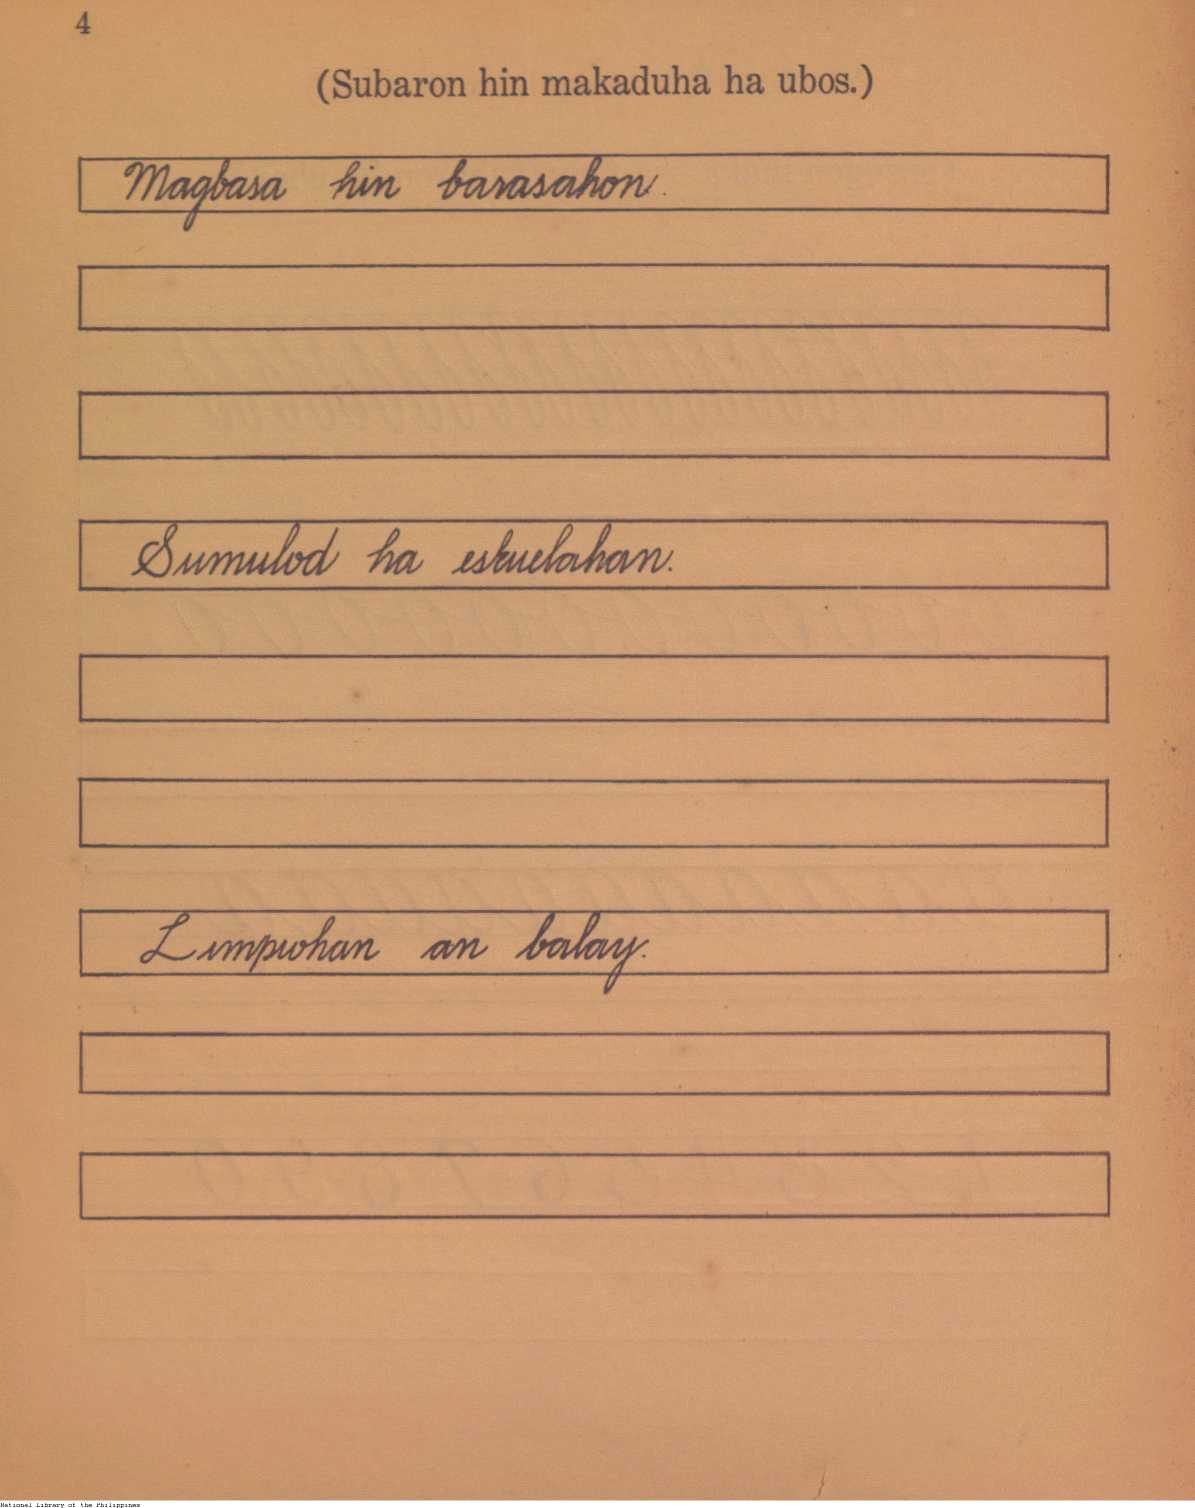 4
(Subaron hin makaduha ha ubos.)
Magbasa hin barasahon.
Sumulod ha eskuelahan.
Limpiohan an balay.
National Library of the Philippines